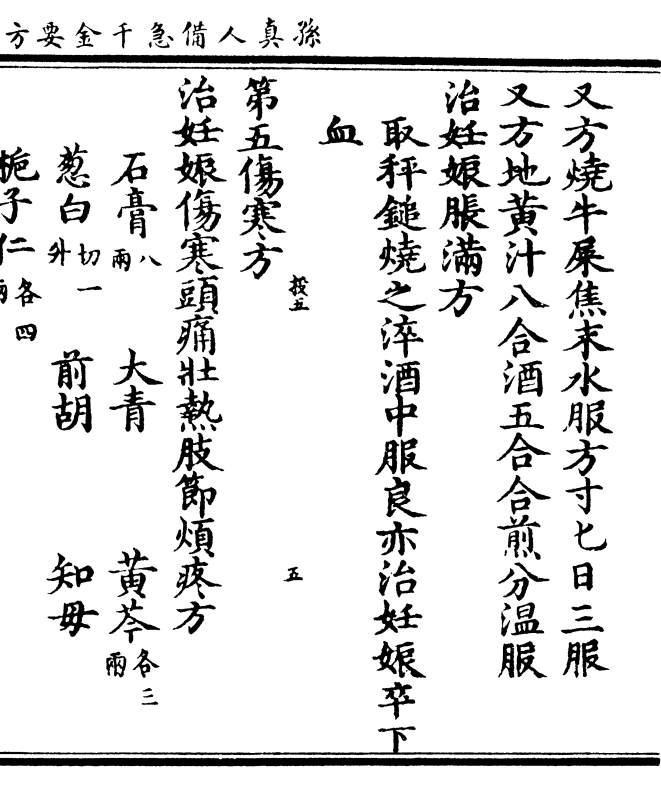 孫真人備急千金要方
又方燒牛屎焦末水服方寸匕日三服
又方地黃汁八合酒五合合煎分溫服
治妊娠脹滿方
取秤鎚燒之淬酒中服良亦治妊娠卒下
血
第五傷寒方
治妊娠傷寒頭痛壯熱肢節煩疼方
石膏八兩 大青 黃芩各三兩
葱白切一升 前胡 知母
梔子仁各四兩